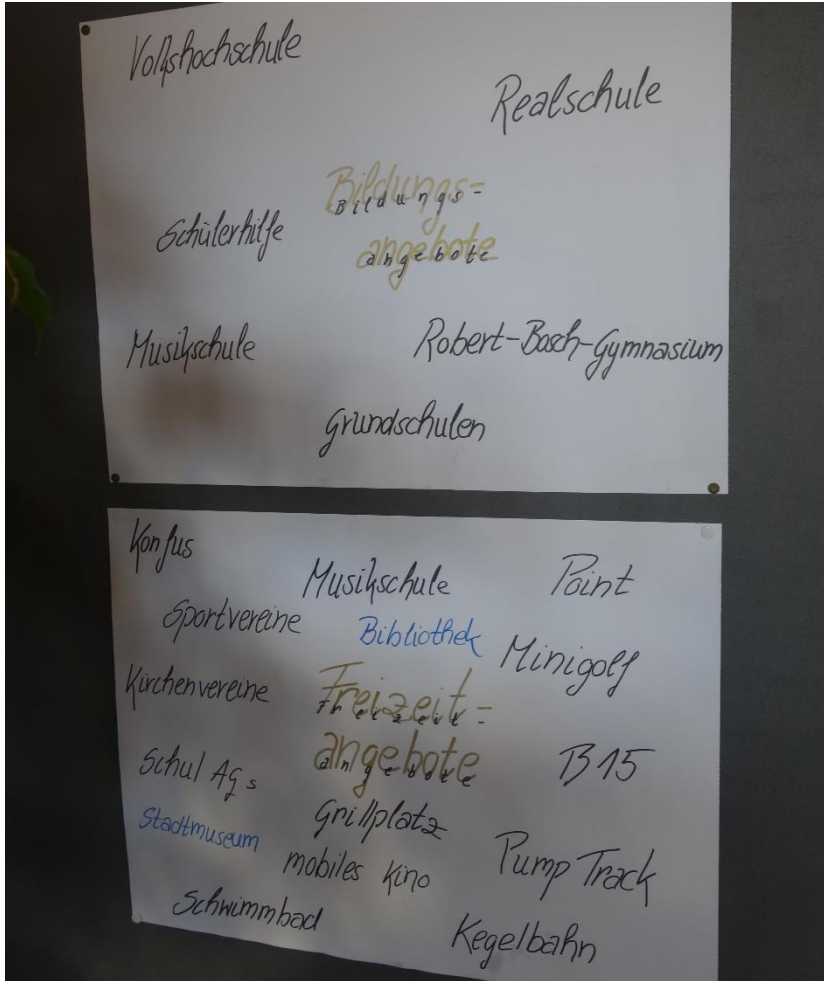 Volkshochschule
Realschule
Bildungs-
Bildungs-
angebote
angebote
Schülerhilfe
Musikschule
Robert-Bosch-Gymnasium
Grundschulen
Konfus
Musikschule
Point
Sportvereine
Bibliothek
Minigolf
Kirchenvereine
Freizeit-
Freizeit-
angebote
angebote
B15
Schul AGs
Grillplatz
Stadtmuseum
mobiles Kino
Pump Track
Schwimmbad
Kegelbahn